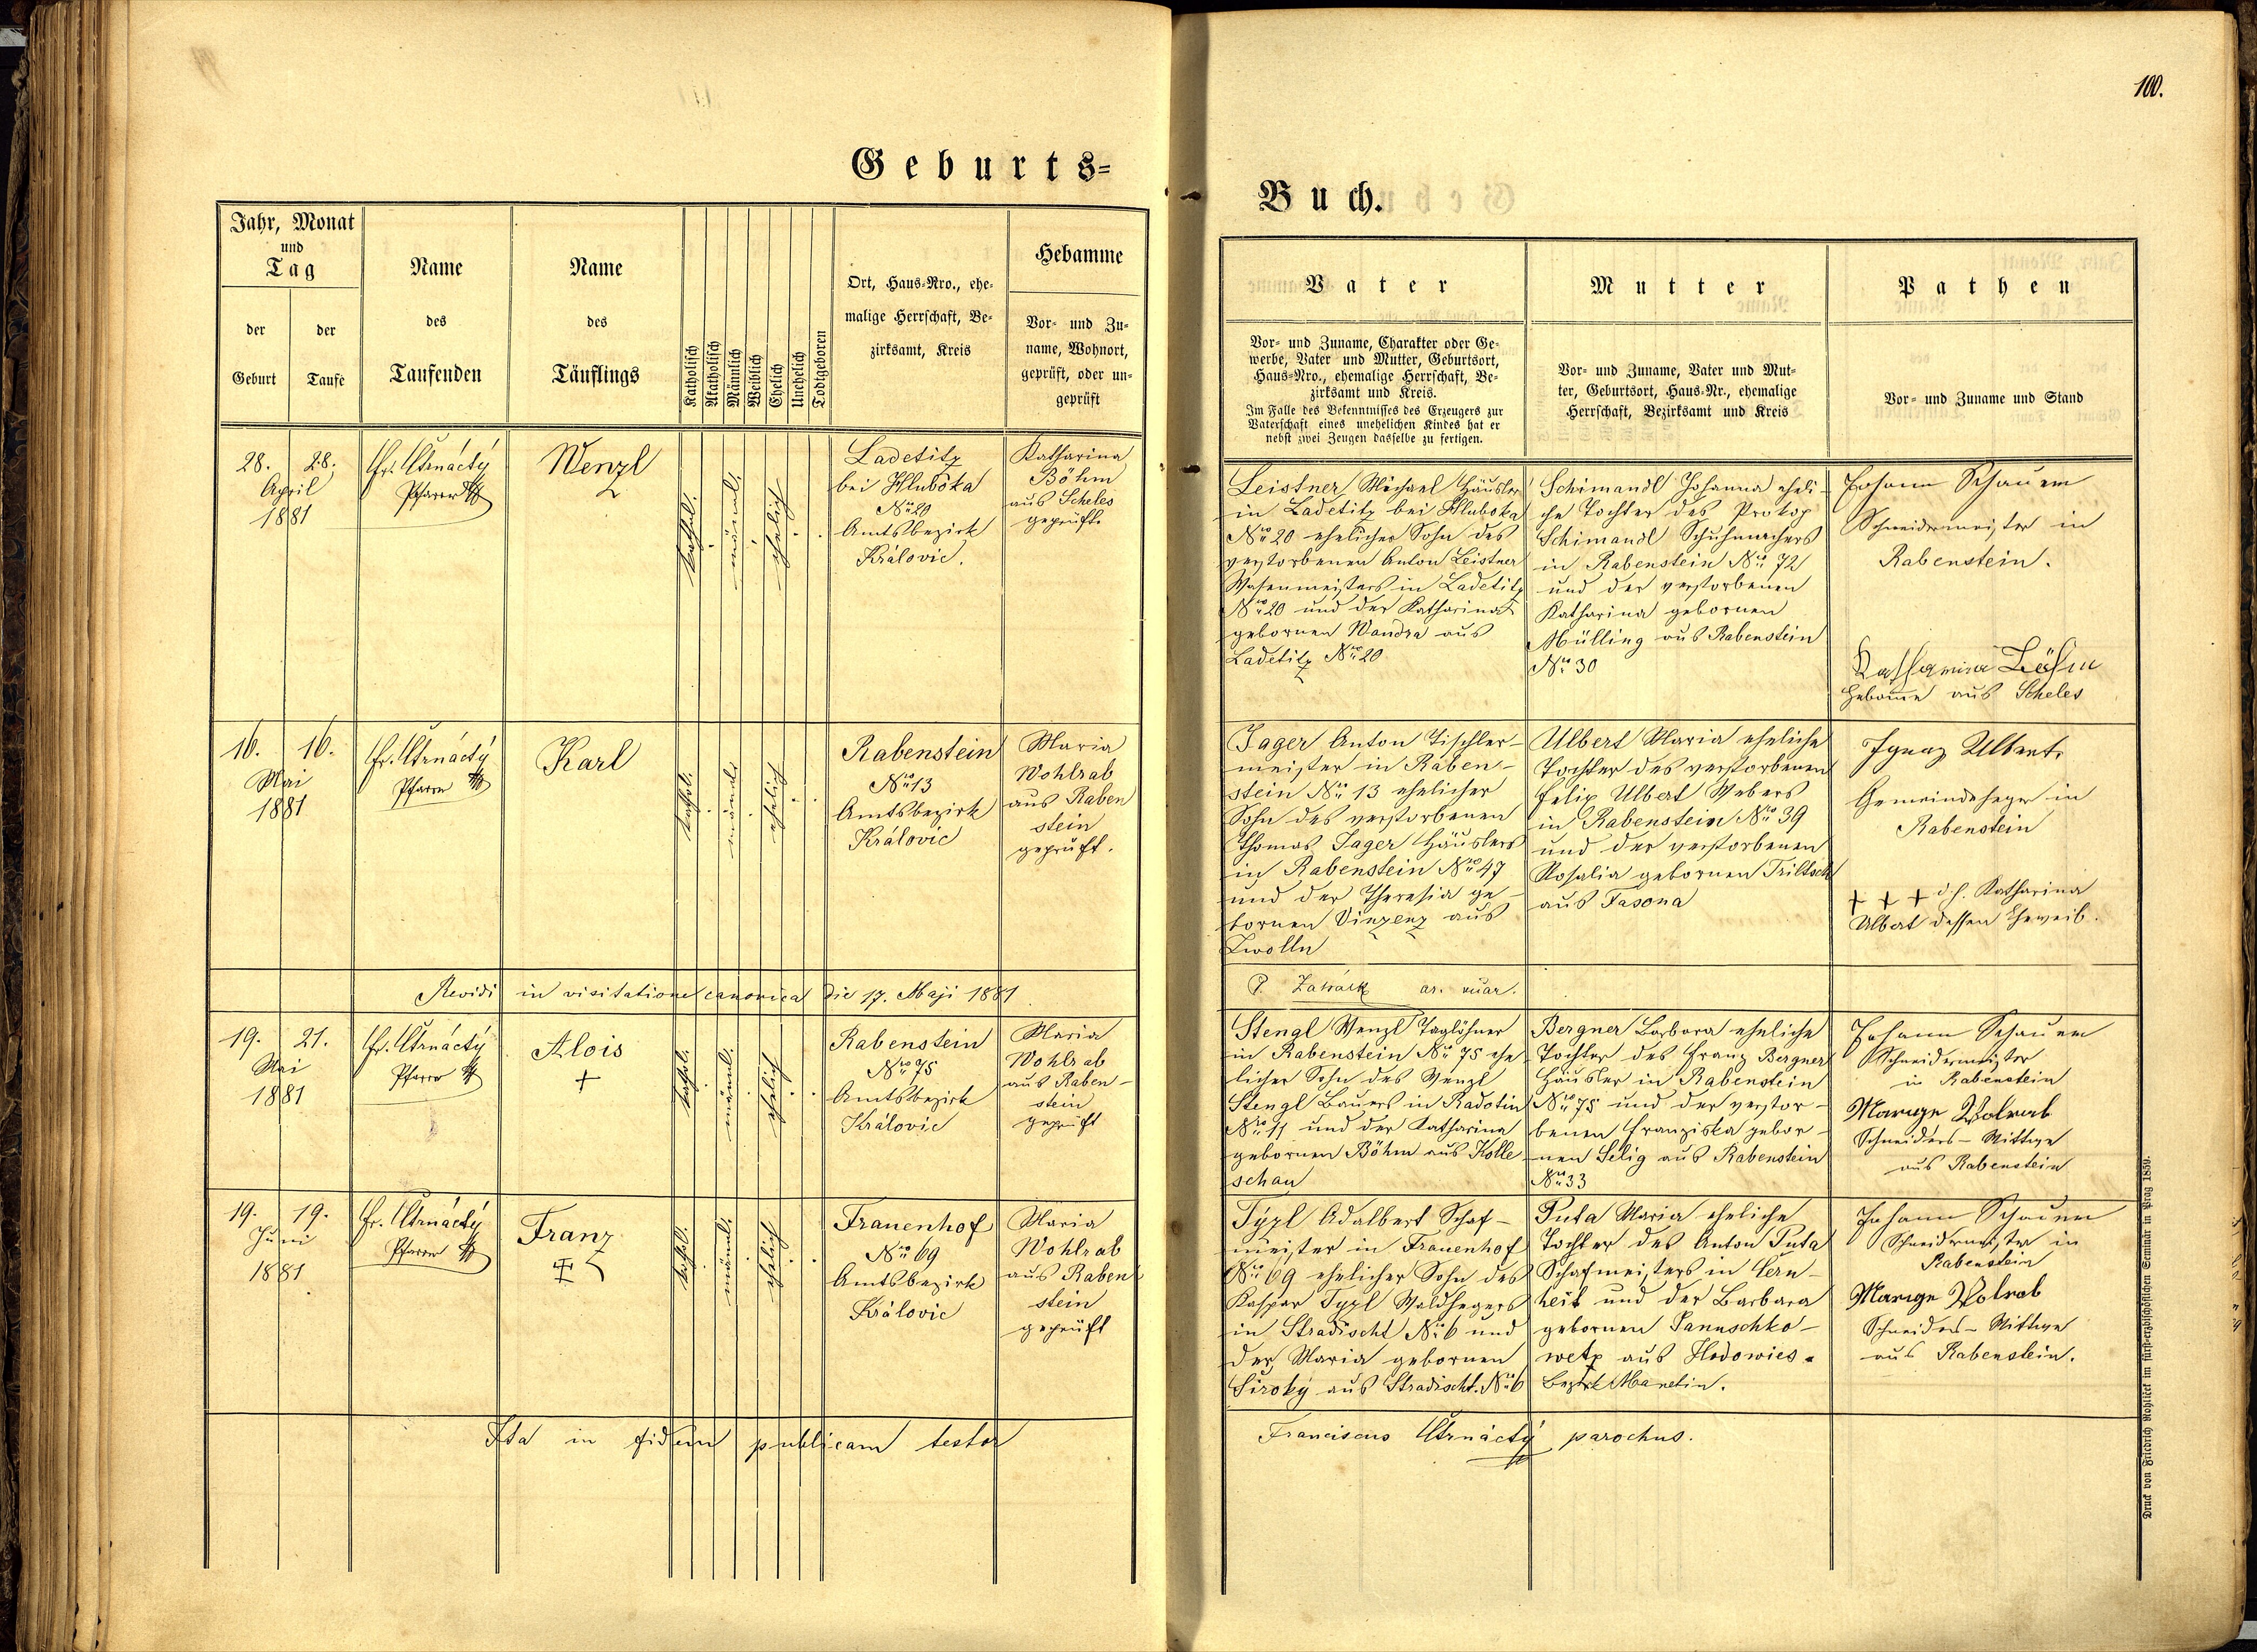 100.
Geburts=
Buch.
Jahr, Monat
und
Tag
der
Geburt
der
Taufe
Name
des
Taufenden
Name
des
Täuflings
Katholisch
Akatholisch
Männlich
Weiblich
Ehelich
Unehelich
Todtgeboren
Ort, Haus-Nro., ehe-
malige Herrschaft, Be-
zirksamt, Kreis
Hebamme
Vor- und Zu-
name, Wohnort,
geprüft, oder un-
geprüft
Vater
Vor- und Zuname, Charakter oder Ge-
werbe, Vater und Mutter, Geburtsort,
Haus-Nro., ehemalige Herrschaft, Be-
zirksamt und Kreis.
Im Falle des Bekenntnisses des Erzeugers zur
Vaterschaft eines unehelichen Kindes hat er
nebst zwei Zeugen dasselbe zu fertigen.
Mutter
Vor- und Zuname, Vater und Mut-
ter, Geburtsort, Haus-Nr., ehemalige
Herrschaft, Bezirksamt und Kreis
Pathen
Vor- und Zuname und Stand
28. 28.
April
1881
Fr. Čtrnáctý
Pfarrer
Wenzl
kathol.
männl.
ehelich
Ladetitz
bei Hluboka
Nro 20
Amtsbezirk
Královic.
Katharina
Böhm
aus Scheles
geprüft.
Leistner Michael Häusler
in Ladetitz bei Hluboka
Nro 20 ehelicher Sohn des
verstorbenen Anton Leistner
Wasenmeisters in Ladetitz
Nro 20 und der Katharina
gebornen Wandra aus
Ladetitz Nro 20
Schimandl Johanna eheli-
che Tochter des Prokop
Schimandl Schuhmachers
in Rabenstein Nro 72
und der verstorbenen
Katharina gebornen
Mülling aus Rabenstein
Nro 30
Johann Schauer
Schneidermeister in
Rabenstein.
Katharina Böhm
Hebamme aus Scheles
16. 16.
Mai
1881
Fr. Čtrnáctý
Pfarrer
Karl
kathol.
männl.
ehelich
Rabenstein
Nro 13
Amtsbezirk
Královic
Maria
Wohlrab
aus Raben
stein
geprüft.
Jager Anton Tischler-
meister in Raben-
stein Nro 13 ehelicher
Sohn des verstorbenen
Thomas Jager Häuslers
in Rabenstein Nro 47
und der Theresia ge-
bornen Vinzenz aus
Zwolln
Ulbert Maria eheliche
Tochter des verstorbenen
Felix Ulbert Webers
in Rabenstein Nro 39
und der verstorbenen
Rosalia gebornen Triltsch
aus Tasona
Ignaz Ulbert
Gemeindeheger in
Rabenstein
+ + + d.h. Katharina
Ulbert dessen Eheweib.
Revidi in visitatione canonica die 17. Maji 1881
19. 21.
Mai
1881
Fr. Čtrnáctý
Pfarrer
Alois
+
kathol.
männl.
ehelich
Rabenstein
Nro 75
Amtsbezirk
Královic
Maria
Wohlrab
aus Raben-
stein
geprüft
Stengl Wenzl Taglöhner
in Rabenstein Nro 75 ehe-
licher Sohn des Wenzl
Stengl Bauers in Radotin
Nro 11 und der Katharina
gebornen Böhm aus Kolle-
schau
Bergner Barbara eheliche
Tochter des Franz Bergner
Häusler in Rabenstein
Nro 75 und der verstor-
benen Franziska gebor-
nen Selig aus Rabenstein
Nro 33
Johann Schauer
Schneidermeister
in Rabenstein
Marige Wolrab
Schneiders-Wittwe
aus Rabenstein
19. 19.
Juni
1881
Fr. Čtrnáctý
Pfarrer
Franz
kathol.
männl.
ehelich
Frauenhof
Nro 69
Amtsbezirk
Královic
Maria
Wohlrab
aus Raben
stein
geprüft
Typl Adalbert Schaf-
meister in Frauenhof
Nro 69 ehelicher Sohn des
Kaspar Typl Waldhegers
in Stradischt Nro 6 und
der Maria gebornen
Široký aus Stradischt. Nro 6
Puta Maria eheliche
Tochter des Anton Puta
Schafmeisters in
und der Barbara
gebornen Januschko-
wetz aus Hodowies.
Bezirk Manetin.
Johann Schauer
Schneidermeister in
Rabenstein
Marige Wolrab
Schneiders-Wittwe
aus Rabenstein.
Ita in fidem publicam testor
Franciscus Čtrnáctý parochus.
Druck von Friedrich Rohlíček im fürst-erzbischöflichen Seminär in Prag 1859.